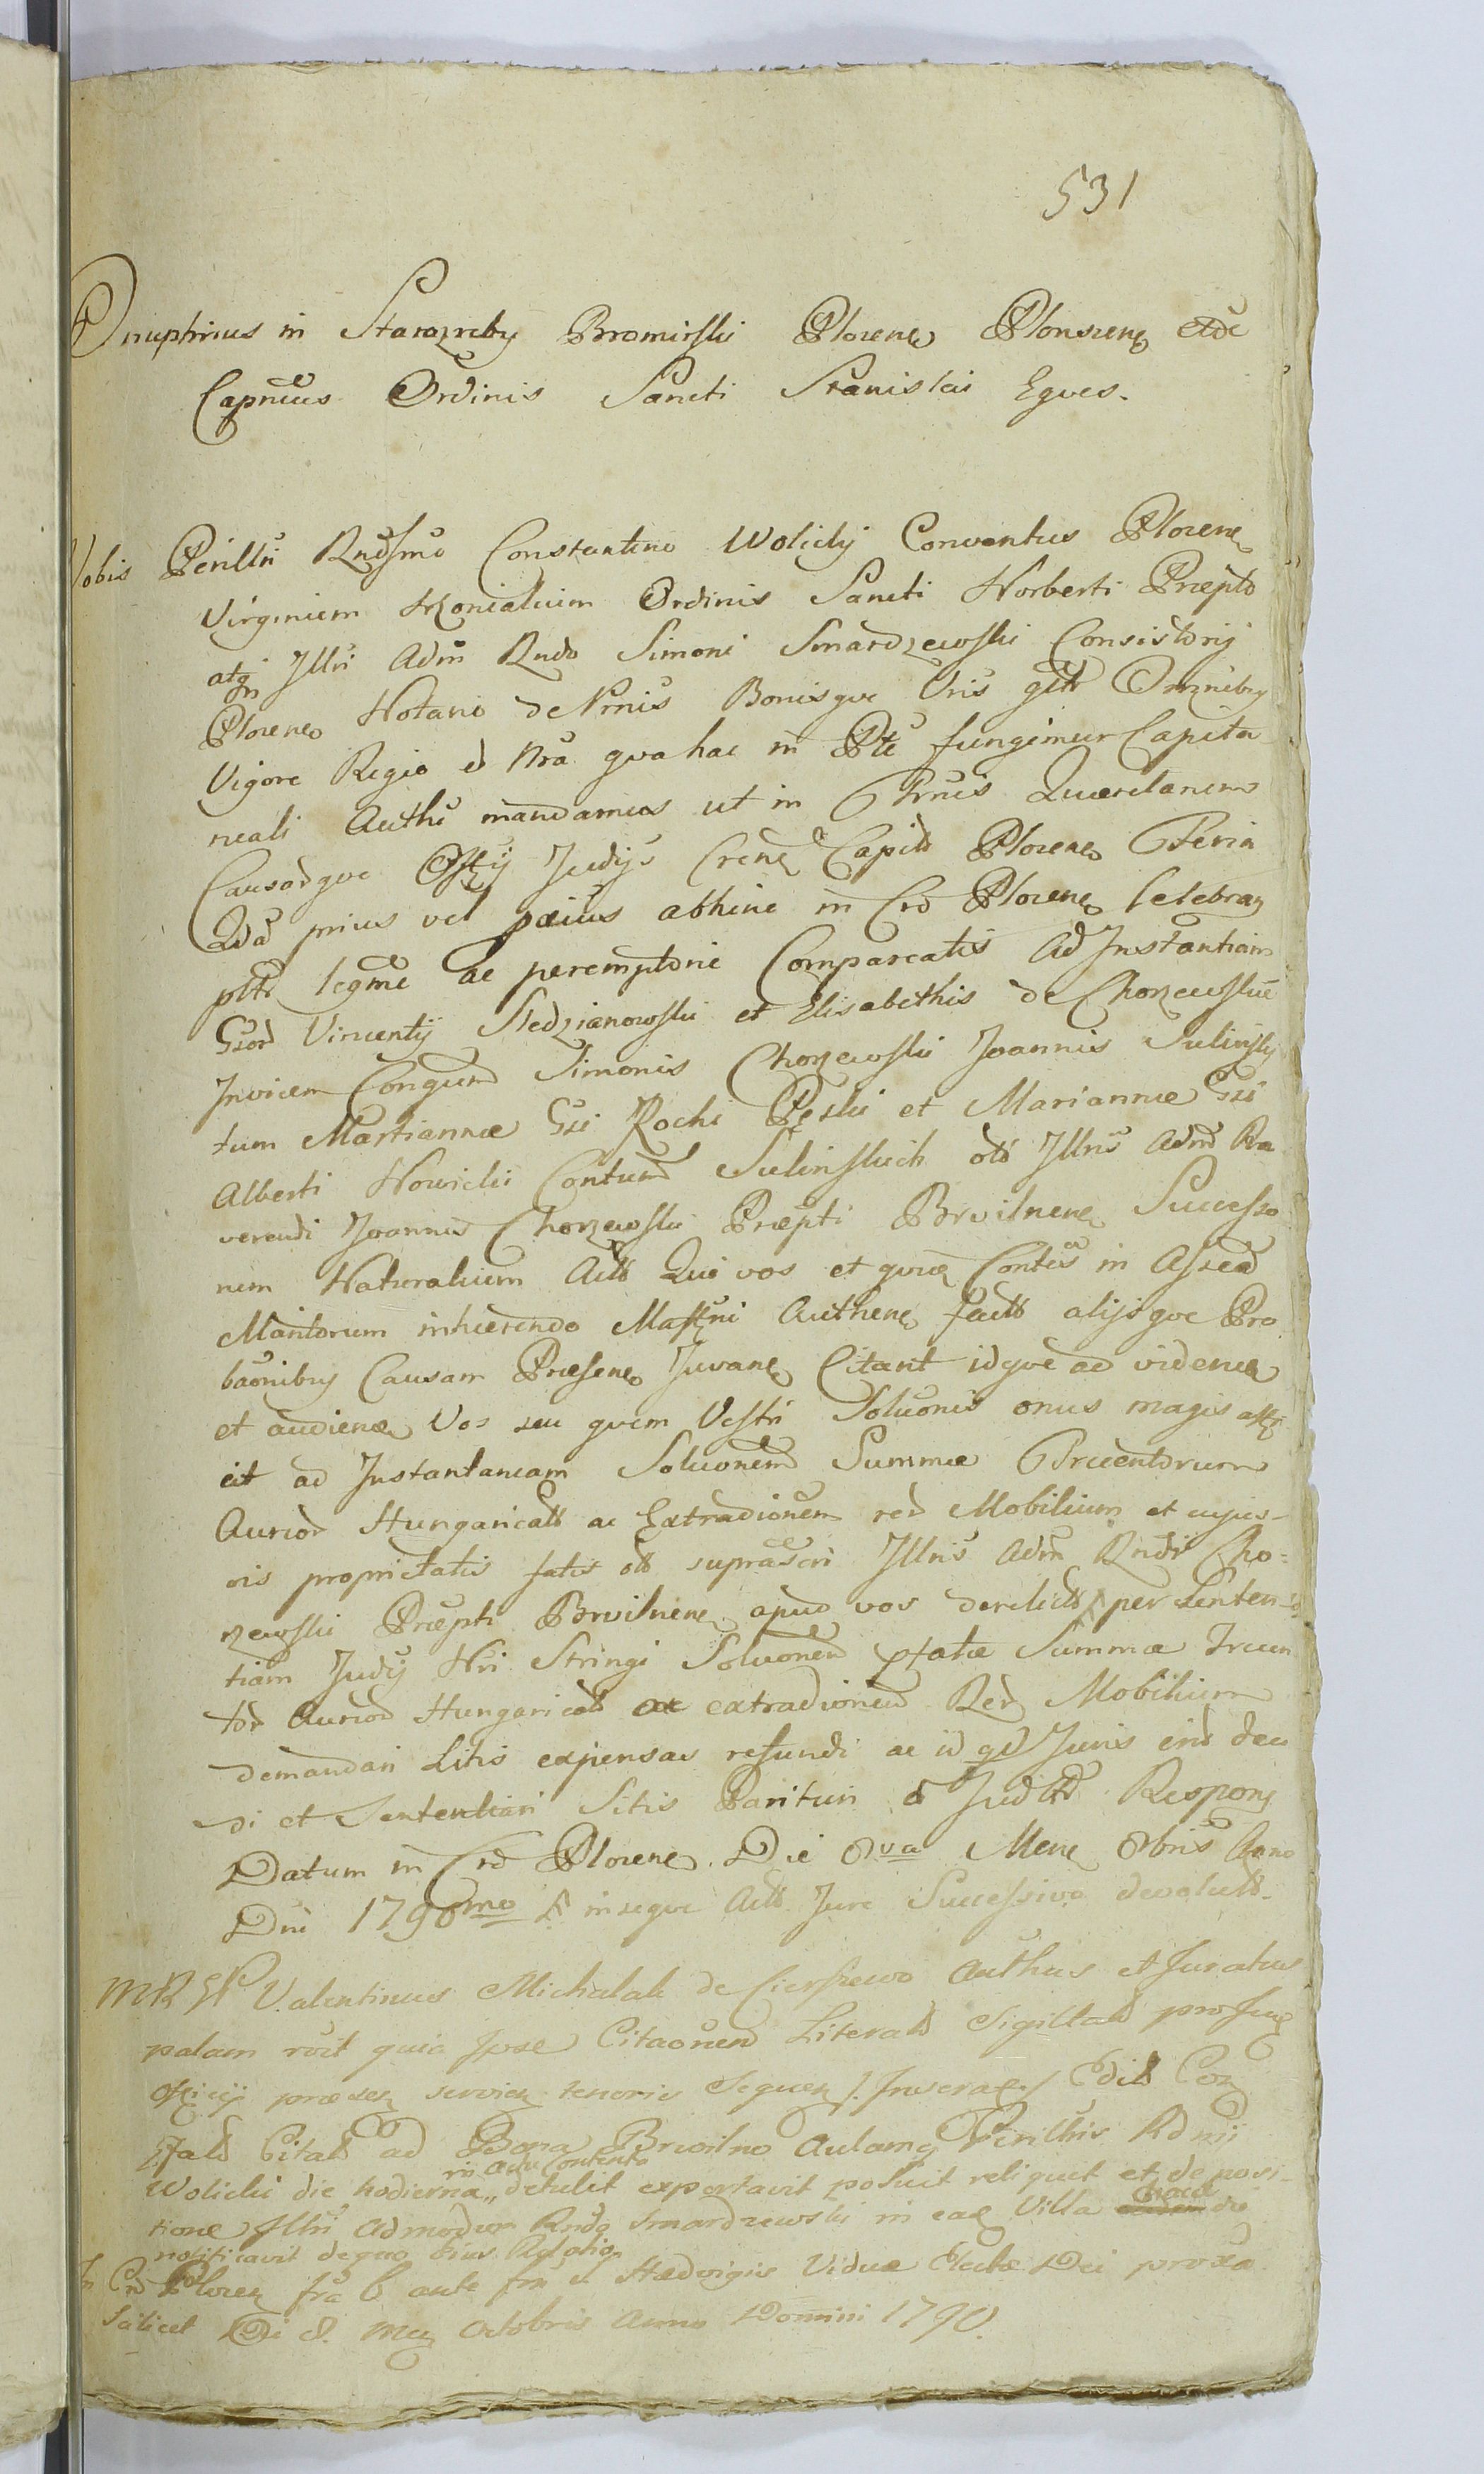 531
Onuphrius in Starozreby Bromirski Plocenẽ Plonscenẽ etdc
Capneus Ordinis Sancti Stanislai Eques.
Vobis Perillri Rndsmo Constantino Wolicky Conventus Plocenẽ
Virginum Monialium Ordinis Sancti Norberti Præpto
atq Illri Adm Rndo Simoni Smardzewski Consistorij
Plocenẽ Notario de Prnis Bonisque Vris gntr Omnibus
Vigore Regia et Nra qua hac in Pte fungimur Capita
neali Authe mandamus ut in Trnis Querelarum
Causarque Officij Judij Crenẽ Capid Plocenẽ Feria
Qda prius vel pcius abhinc in Crd Plocenẽ Celebran
pltr legme ac peremptorie Compareatis Ad Instantiam
Gsor Vincentij Sledzianowski et Elisabethis de Chorzewskie
Invicem Congum Simonis Chorzewski Joannis Sulinsky
tum Martiannæ Gsi Rochi Peski et Mariannæ Gsi
Alberti Nowicki Contum Sulinskich olb Illris Adm Re
verendi Joannis Chorzewski Præpti Brwilnenẽ Successo
rum Naturalium Actb Qui vos et quis Contes in Assed
Maritorum inhærendo Maftni Authenẽ factb alijsque Pro
baonibus Causam Præsenẽ Juvanẽ Citant idque ad videnẽ
et audienẽ Vos seu quem Vestri Soluonis onus magis affi
cit ad Instantaneam Soluonem Summæ Trecentorum
Auror Hungaricalb ac Extradionem rer Mobilium et cujus-
vis proprietatis fatis olb suprascri Illris Adm Rndi Cho-
rzewski Præpti Brwilnenẽ apud vos derelictb per Senten-
tiam Judij Nri Stringi Soluonem pfatæ Summæ Trecen
tor Auror Hungaricalb ac extradionem Rer Mobilium
demandari Litis expensas refundi ac id qd Juris erit dec
di et Sententiari Sitis Parituri & Judltr Respons
Datum in Crd Plocenẽ. Die 8va Mens Obris Anno
Dni 1790mo in seque Actb Jure Successivo devolutb.
Valentinus Michalak de Cierszewo Authus et Juratus
palam rcit quia Ipse Citaonem Literalb Sigillalb pro Jure
Officij præsen servien tenoris Sequen /. Inserae ./ Edilb Con
pfalb Citalb ad Bona Brwilno Aulamq Perillris Rdmi
in Actu Contento
Wolicki die hodierna detulit exportavit posuit reliquit et de posi-
tione Illri Admodum Rndo Smardzewski in eae Villa eadem die
hacce
notificavit de quo Sius Relatio
In Crd Plocen fra 6 ante fm S. Hedvigis Viduæ Electæ Dei proxa
Scilicet Die 8. Mens Octobris Anno Domini 1790.